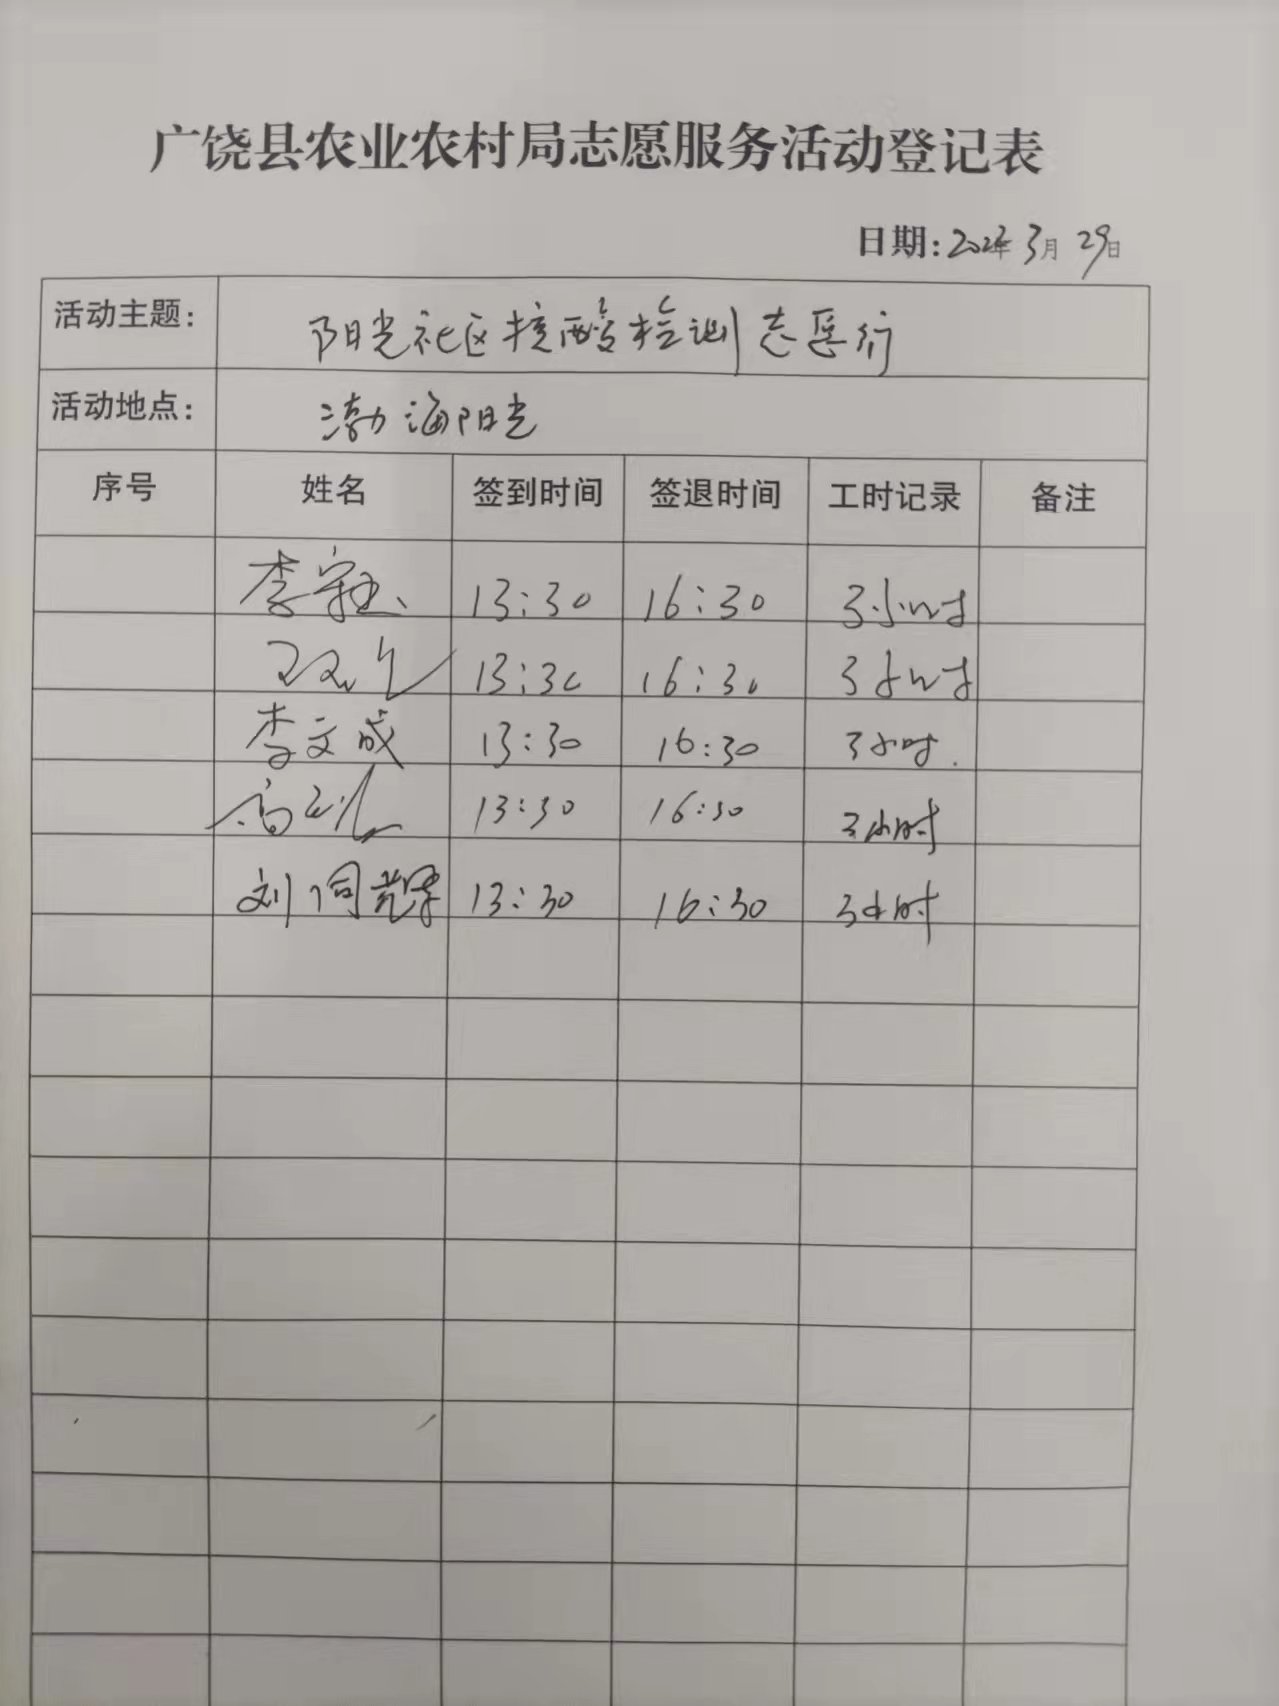 广饶县农业农村局志愿服务活动登记表
日期:2022年3月29日
活动主题: 阳光社区核酸检测志愿行
活动地点: 渤海阳光
序号 姓名 签到时间 签退时间 工时记录 备注
李 13:30 16:30 3小时
13:30 16:30 3小时
李文成 13:30 16:30 3小时.
高 13:30 16:30 3小时
刘同 13:30 16:30 3小时